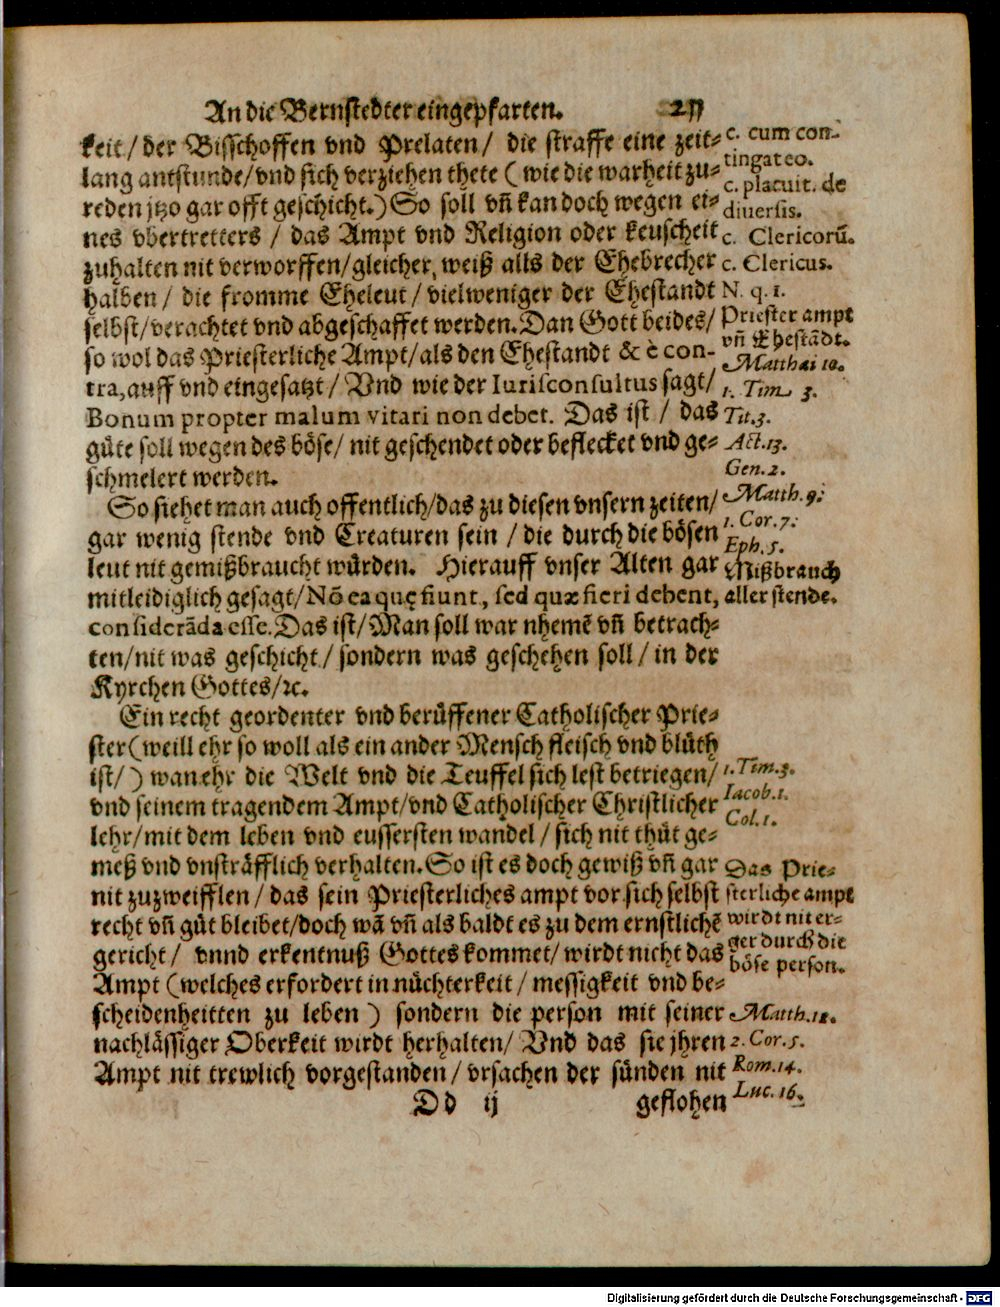 An die Bernstedter eingepfarten.
keit/ der Bisschoffen vnd Prelaten/ die straffe eine zeit⸗
lang antstunde/vnd sich verziehen thete (wie die warheit zu⸗
reden jtzo gar offt geschicht.) So soll vñ kan doch wegen ei⸗
nes vbertretters / das Ampt vnd Religion oder keuscheit
zuhalten nit verworffen/gleicher, weiß alls der Ehebrecher
halben/ die fromme Eheleut/ vielweniger der Ehestandt
selbst/verachtet vnd abgeschaffet werden. Dan Gott beides/
so wol das Priesterliche Ampt/als den Ehestandt & è con-
tra, auff vnd eingesatzt/ Vnd wie der Iurisconsultus sagt/
Bonum propter malum vitari non debet. Das ist / das
güte soll wegen des böse/ nit geschendet oder beflecket vnd ge⸗
schmelert werden.
So siehet man auch offentlich/das zu diesen vnsern zeiten/
gar wenig stende vnd Creaturen sein /die durch die bösen
leut nit gemißbraucht würden. Hierauff vnser Alten gar
mitleidiglich gesagt/ Nõ ea quę fiunt, sed quæ fieri debent,
considerãda esse. Das ist/ Man soll war nhemẽ vñ betrach⸗
ten/nit was geschicht/ sondern was geschehen soll/ in der
Kyrchen Gottes/ꝛc.
Ein recht geordenter vnd berüffener Catholischer Prie⸗
ster (weill ehr so woll als ein ander Mensch fleisch vnd blüth
ist/) wan ehr die Welt vnd die Teuffel sich lest betriegen/
vnd seinem tragendem Ampt/vnd Catholischer Christlicher
lehr/mit dem leben vnd eussersten wandel/ sich nit thüt ge⸗
meß vnd vnsträfflich verhalten. So ist es doch gewiß vñ gar
nit zuzweifflen/ das sein Priesterliches ampt vor sich selbst
recht vñ güt bleibet/doch wã vñ als baldt es zu dem ernstlichẽ
gericht/ vnnd erkentnuß Gottes kommet/ wirdt nicht das
Ampt (welches erfordert in nüchterkeit/ messigkeit vnd be⸗
scheidenheitten zu leben) sondern die person mit seiner
nachlässiger Oberkeit wirdt herhalten/ Vnd das sie jhren
Ampt nit trewlich vorgestanden/ vrsachen der sünden nit
Dd ij geflohen
c. cum con-
tingat eo.
c. placuit. de
diuersis.
c. Clericorũ.
c. Clericus.
N. q. 1.
Priester ampt
vñ Ehestãdt.
Matthæi 10.
1. Tim 3.
Tit. 3.
Act. 13.
Gen. 2.
Matth. 9.
1. Cor. 7.
Eph. 5.
Mißbrauch
aller stende.
1. Tim. 3.
Iacob. 1.
Col. 1.
Das Prie⸗
sterliche ampt
wirdt nit er⸗
ger durch die
böse person.
Matth. 18.
2. Cor. 5.
Rom. 14.
Luc. 16.
Digitalisierung gefördert durch die Deutsche Forschungsgemeinschaft - DFG